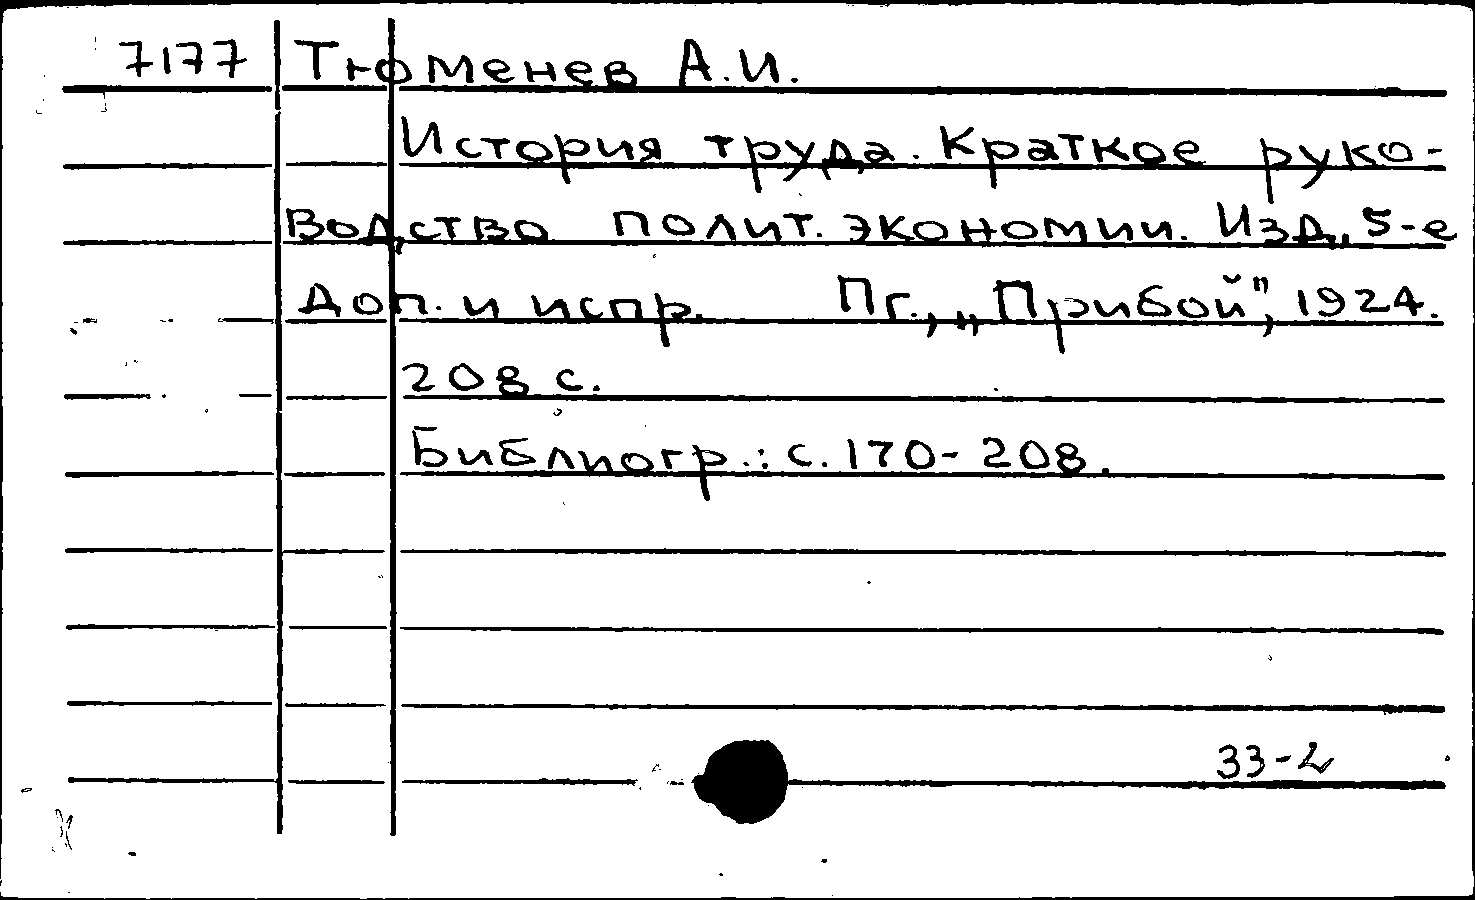 7177 Тюменев А.И.
История труда. Краткое руко-
водство полит. экономии. Изд. 5-е
доп. и испр. Пг., „Прибой", 1924.
208 с.
Библиогр.: с. 170-208.
33-2